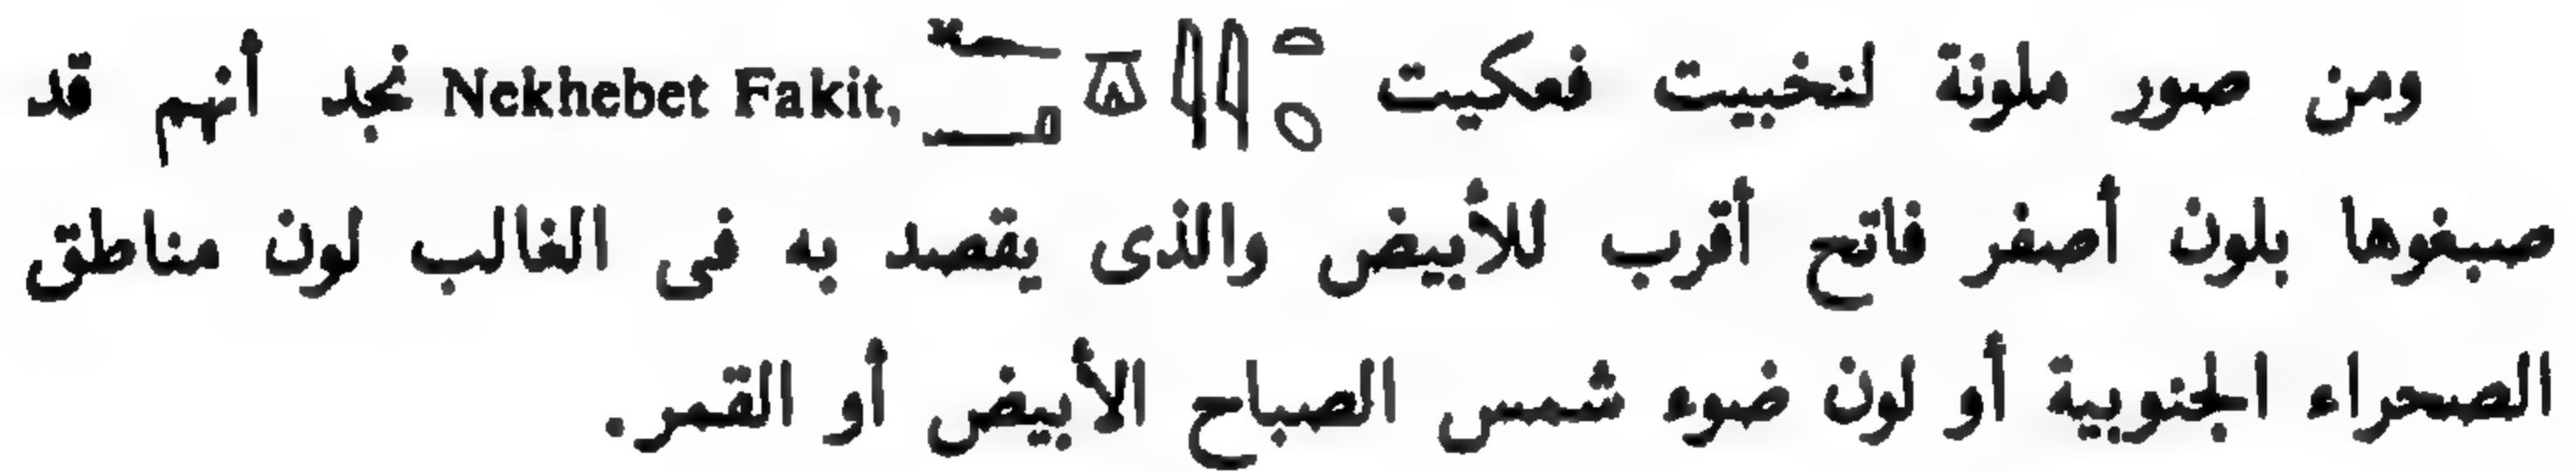 ومن صور ملونة لنخبيت فعكيت Nekhebet Fakit, نجد أنهم قد
صبغوها بلون أصفر فاتح أقرب للأبيض والذى يقصد به فى الغالب لون مناطق
الصحراء الجنوبية أو لون ضوء شمس الصباح الأبيض أو القمر.